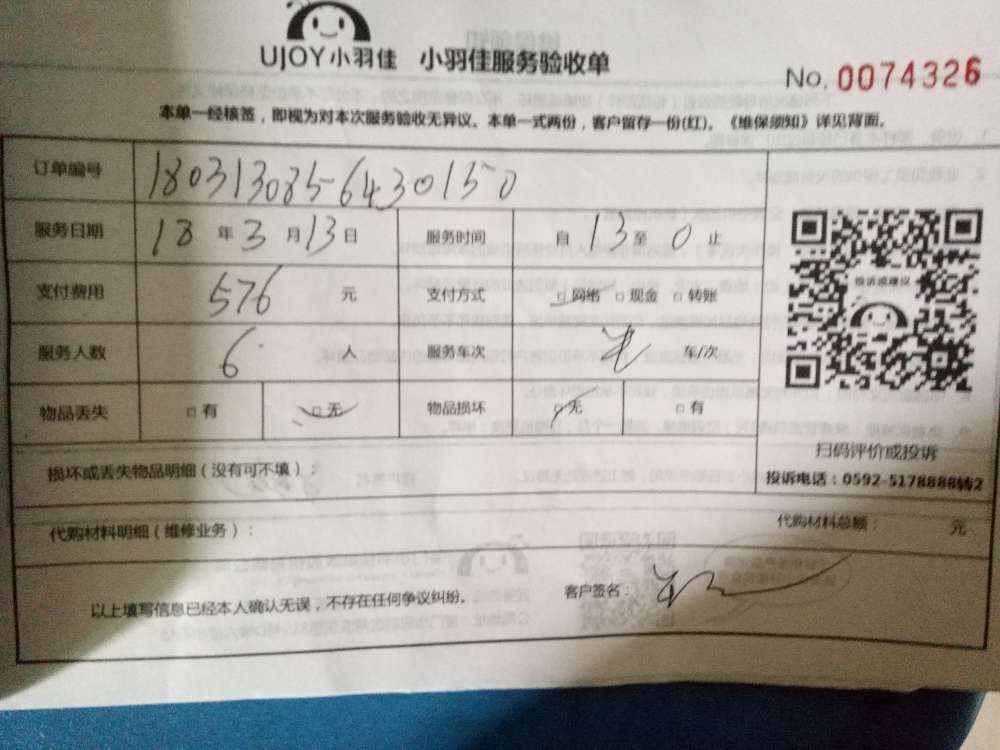 UJOY小羽佳 小羽佳服务验收单
No. 0074326
本单一经核签，即视为对本次服务验收无异议。本单一式两份，客户留存一份(红)。《维保须知》详见背面。
订单编号 180313085-6430150
服务日期 18 年 3 月 13 日 服务时间 自 13 至 0 止
支付费用 576 元 支付方式 □网络 □现金 □转账
服务人数 6 人 服务车次 车/次
物品丢失 □有 □无 物品损坏 □无 □有
投诉或建议
扫码评价或投诉
投诉电话：0592-5178888转2
损坏或丢失物品明细（没有可不填）：
代购材料明细（维修业务）： 代购材料总额： 元
以上填写信息已经本人确认无误，不存在任何争议纠纷。 客户签名：